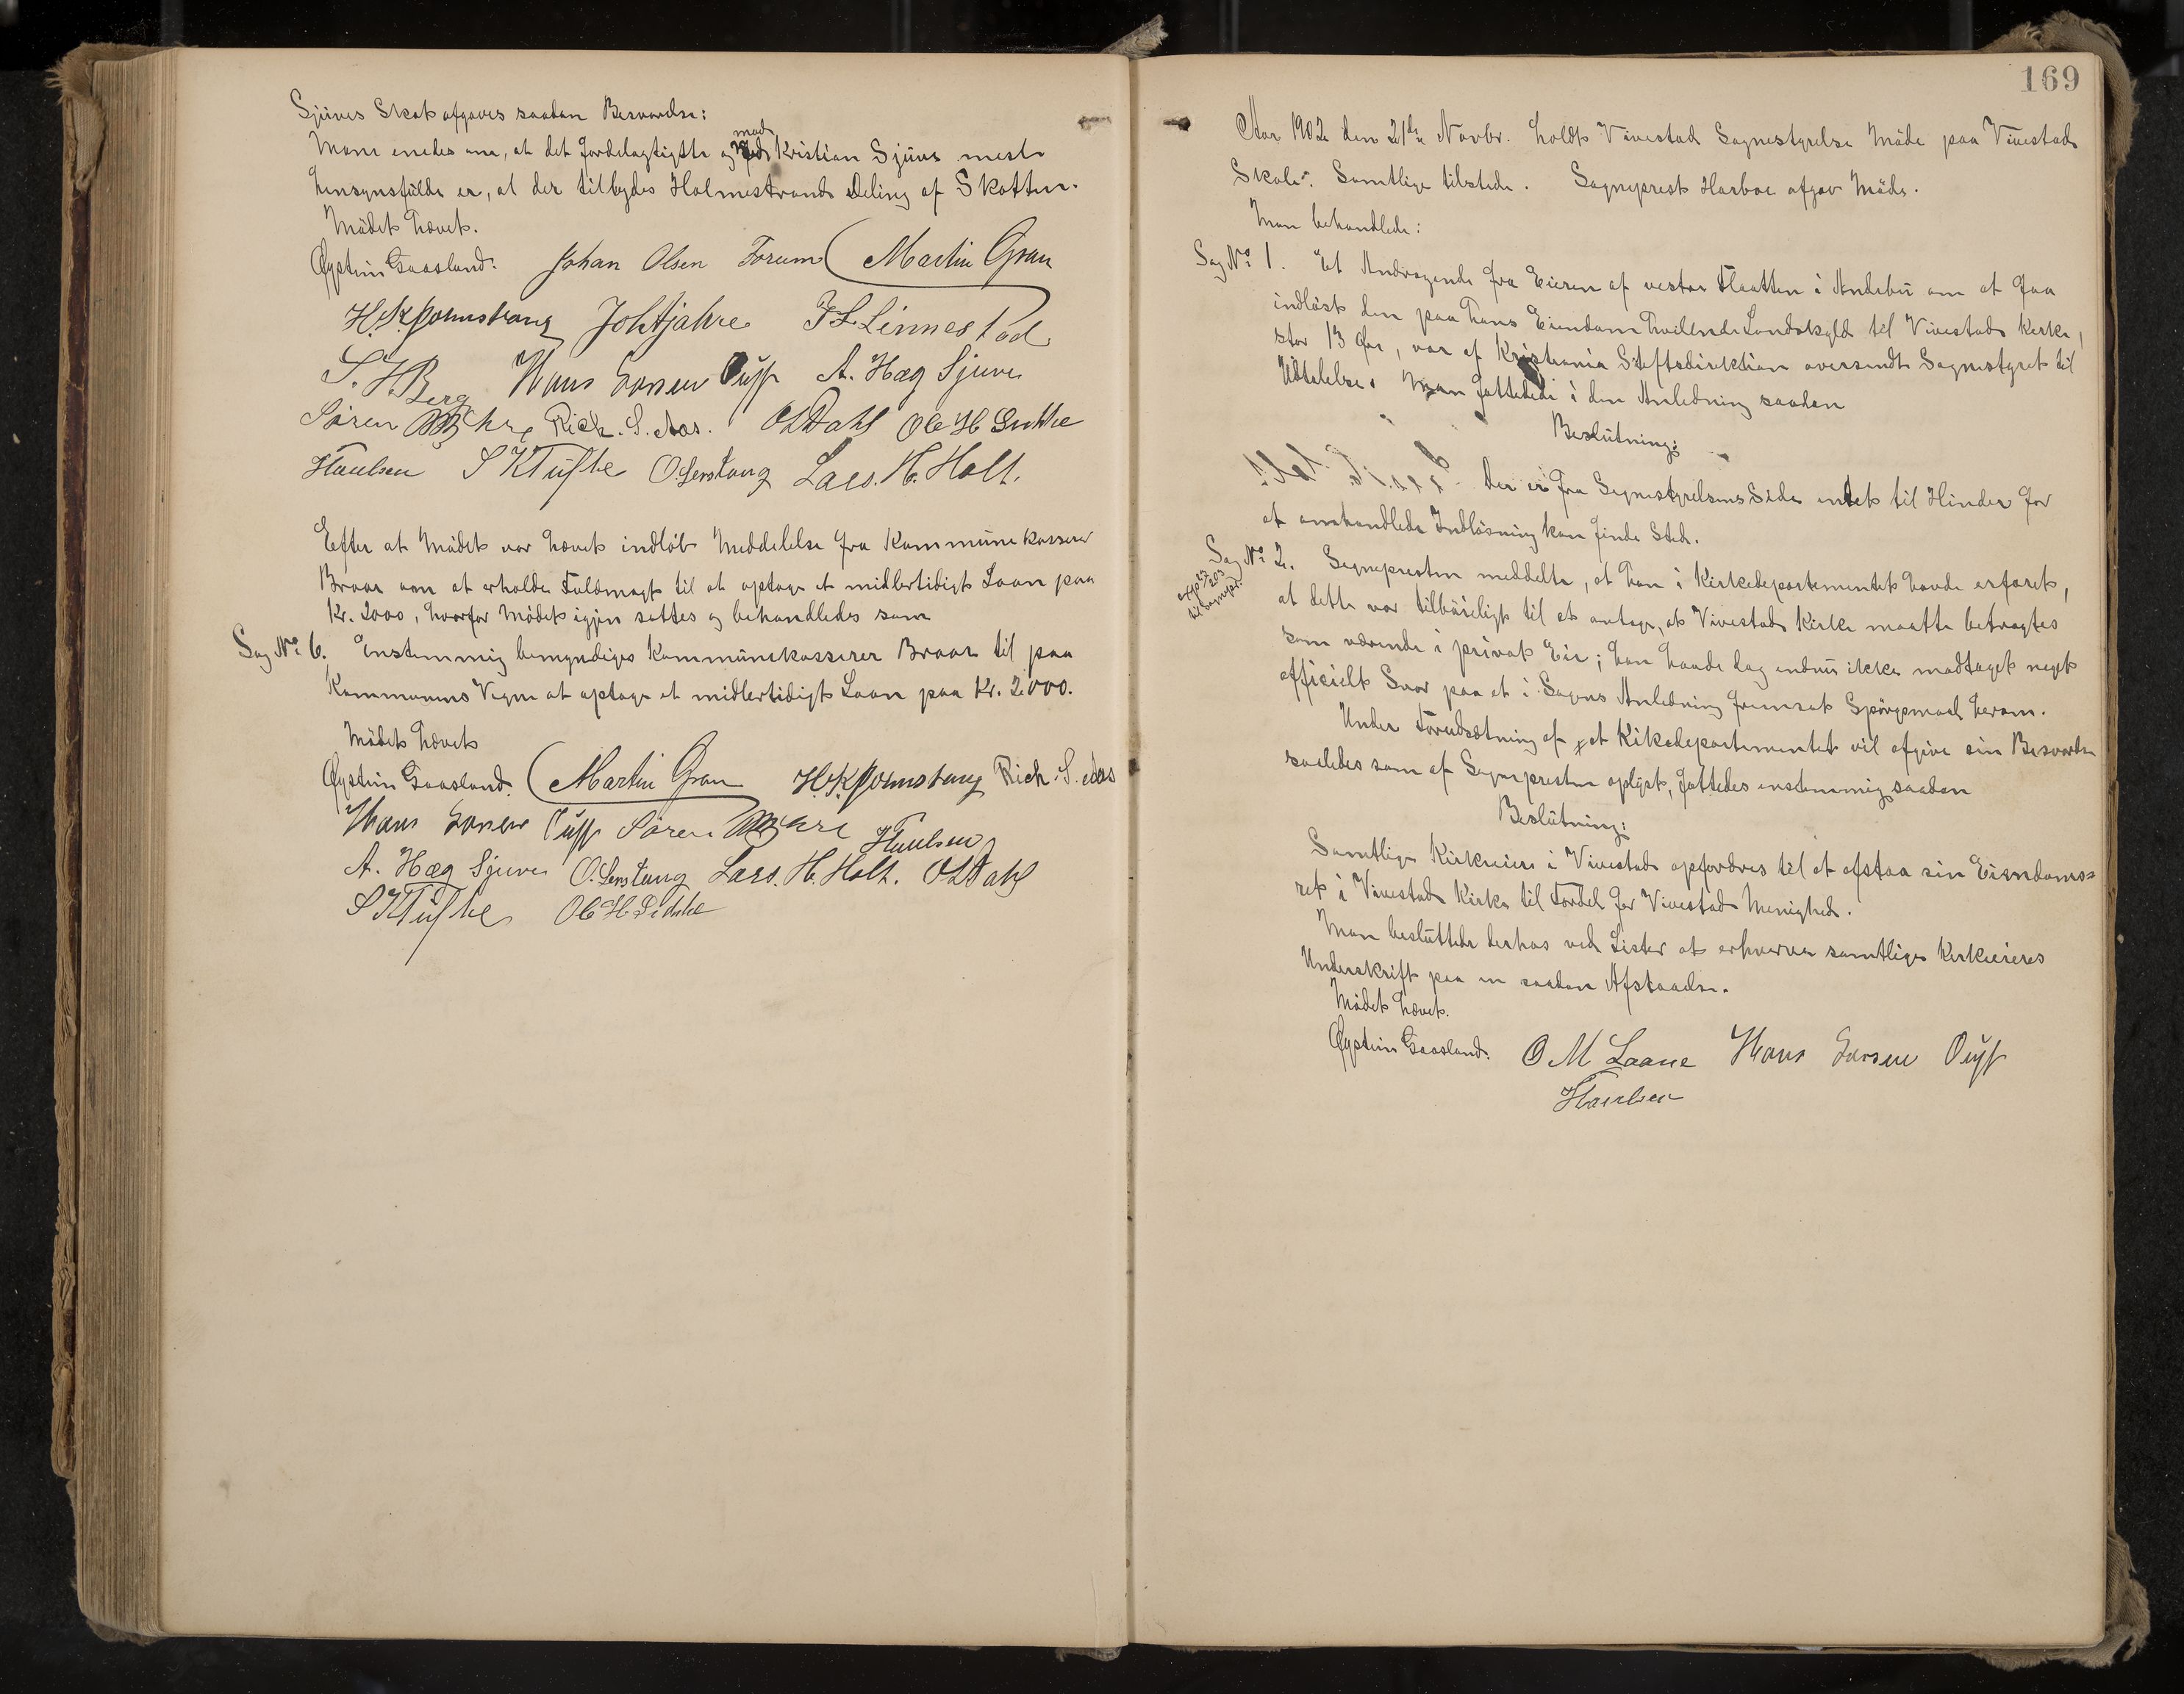 Sjüves Skat afgaves saadan Besvarelse:
Man enedes om, at det fordelagtigste og mod Kristian Sjüve mest
hensynsfülde er, at der tilbydes Holmestrand Deling af Skatten.
Mödet hævet.
Øystein Gaasland. Johan Olsen Forum Martin Gran
H. K. Johtjahre J L Linnestad
S. H. Berg Hans Larsen A. Hæg Sjuve
Sören Mæhre Rich. S. Aas. O L Dahl Ole H
Paulsen S K Tüfte O. Serstang Lars. H. Holt.
Efter at Mödet var hævet indlöb Meddelelse fra Kommünekasserer
Braar om at erholde Fuldmagt til at optage et midlertidigt Laan paa
Kr. 2000, hvorfor Mödet igjen sattes og behandledes som
Sag No 6. Enstemmig bemyndiges Kommünekasserer Braar til paa
Kommunens Vegne at optage et midlertidigt Laan paa Kr. 2000.
Mödet hævet
Øystein Gaasland. Martin Gran H. K. Rich. S. Aas
Hans Larsen Sören Mæhre Paulsen
A. Hæg Sjuve O. Serstang Lars. H. Holt. O L Dahl
S K Tüfte Ole H
169
Aar 1902 den 21de Novbr. holdt Vivestad Sognestyrelse Möde paa Vivestad
Skole. Samtlige tilstede. Sogneprest Harboe afgav Möde.
Man behandlede:
Sag No 1. Et Andragende fra Eieren af vestre Flaatten i Andebü om at faa
indlöst den paa hans Eiendom hvilende Landskyld til Vivestad Kirke,
stor 13 Øre, var af Kristiania Stiftsdirektion oversendt Sognestyret til
Udtalelse. Man fattede i den Anledning saadan
Beslütning:
Der er fra Sognestyrelsens Side intet til Hinder for
at omhandlede Indlösning kan finde Sted.
Sag No 2. Sognepresten meddelte, at han i Kirkedepartementet havde erfaret,
exp 23/203
til Sognepr.
at dette var tilböieligt til at antage, at Vivestad Kirke maatte betragtes
som værende i privat Eie; han havde dog endnü ikke modtaget noget
officielt Svar paa et i Sagens Anledning fremsat Spörgsmaal herom.
Under Forudsætning af at Kikedepartementet vil afgive sin Besvarelse
saaledes som af Sognepresten oplyst, fattedes enstemmig saadan
Beslütning:
Samtlige Kirkeeiere i Vivestad opfordres til at afstaa sin Eiendoms=
ret i Vivestad Kirke til Fordel for Vivestad Menighed.
Man beslüttede derhos ved Lister at erhverve samtlige Kirkeeieres
Underskrift paa en saadan Afstaaelse.
Mödet hævet.
Øystein Gaasland. O M Laane Hans Larsen
Paulsen